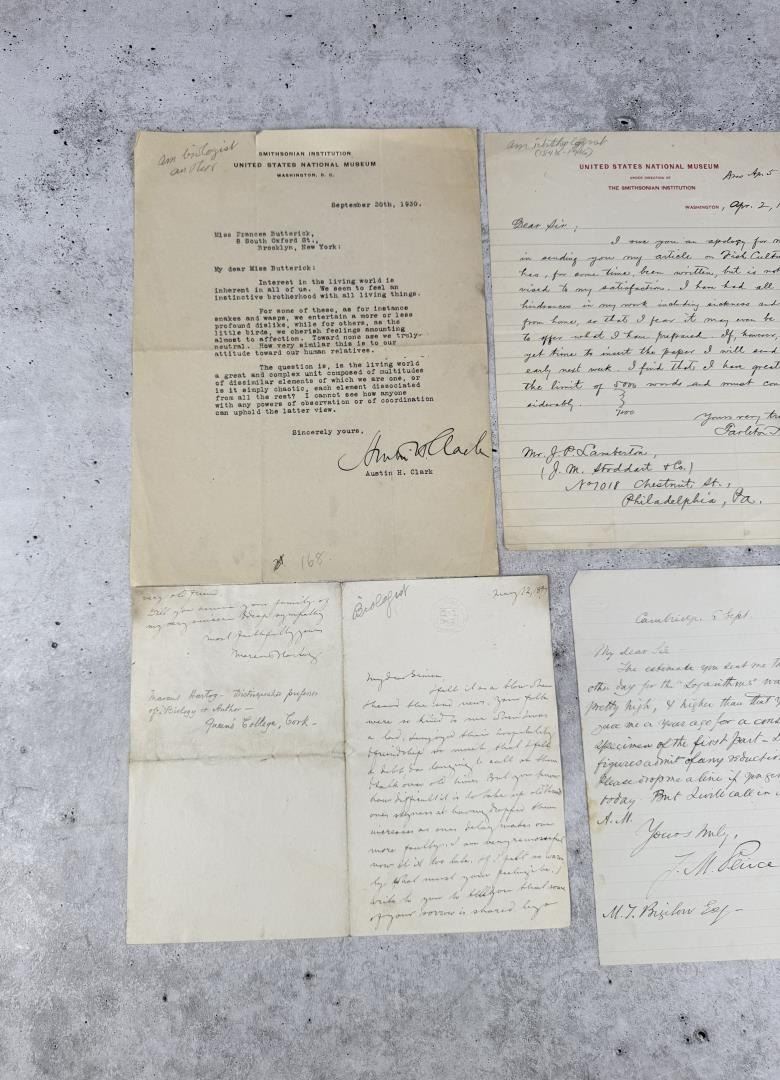 am biologist
author
SMITHSONIAN INSTITUTION
UNITED STATES NATIONAL MUSEUM
WASHINGTON, D. C.
September 30th, 1930.
Miss Frances Butterick,
8 South Oxford St.,
Brooklyn, New York:
My dear Miss Butterick:
Interest in the living world is
inherent in all of us. We seem to feel an
instinctive brotherhood with all living things.
For some of these, as for instance
snakes and wasps, we entertain a more or less
profound dislike, while for others, as the
little birds, we cherish feelings amounting
almost to affection. Toward none are we truly
neutral. How very similar this is to our
attitude toward our human relatives.
The question is, is the living world
a great and complex unit composed of multitudes
of dissimilar elements of which we are one, or
is it simply chaotic, each element dissociated
from all the rest? I cannot see how anyone
with any powers of observation or of coordination
can uphold the latter view.
Sincerely yours,
Austin H. Clark
Austin H. Clark
168.
am ichthyologist
UNITED STATES NATIONAL MUSEUM
UNDER DIRECTION OF
THE SMITHSONIAN INSTITUTION
Ans Ap. 5
WASHINGTON, Apr. 2, 1
Dear Sir;
I owe you an apology for
in sending you my article on Fish Cultu
has, for some time, been written, but is not
vised to my satisfaction. I have had all
hindrances in my work including sickness and
from home, so that I fear it may even be
to offer what I have prepared. If, however,
yet time to insert the paper I will send
early next week. I find that I have great
the limit of 5000 words and must con
siderably.
7500
Yours very tru
Tarleton
Mr. J. P. Lamberton,
(J. M. Stoddart & Co.)
No 1018 Chestnut St.,
Philadelphia, Pa.
very old friend.
your family of
my very sincere & deep sympathy
Most faithfully yours
Marcus Hartog
Marcus Hartog - Distinguished professor
of Biology & Author -
Queen's College, Cork -
Biologist
May 12, 189
My dear
I felt it as a blow when
I heard the sad news. Your folk
were so kind to me when I was
a lad, & enjoyed their hospitality
& friendship so much that I felt
& talk over old times. But you know
how difficult it is to take up old threads
ones shyness at having dropped them
increases as ones delay makes one
more faulty. I am being remorseful
now it is too late. If I felt so warm
ly, what must your feelings be. I
write to you to tell you that some
of your sorrow is shared by a
Cambridge 5 Sept
My dear Sir
The estimate you sent me th
other day for the "Logarithms" wa
pretty high, & higher than that
gave me a year ago for a cons
specimen of the first part -
figures admit of any reduction
Please drop me a line if you get
today. But I will call in
A.M.
Yours truly,
J. M. Peirce
M. T. Bigelow Esq -